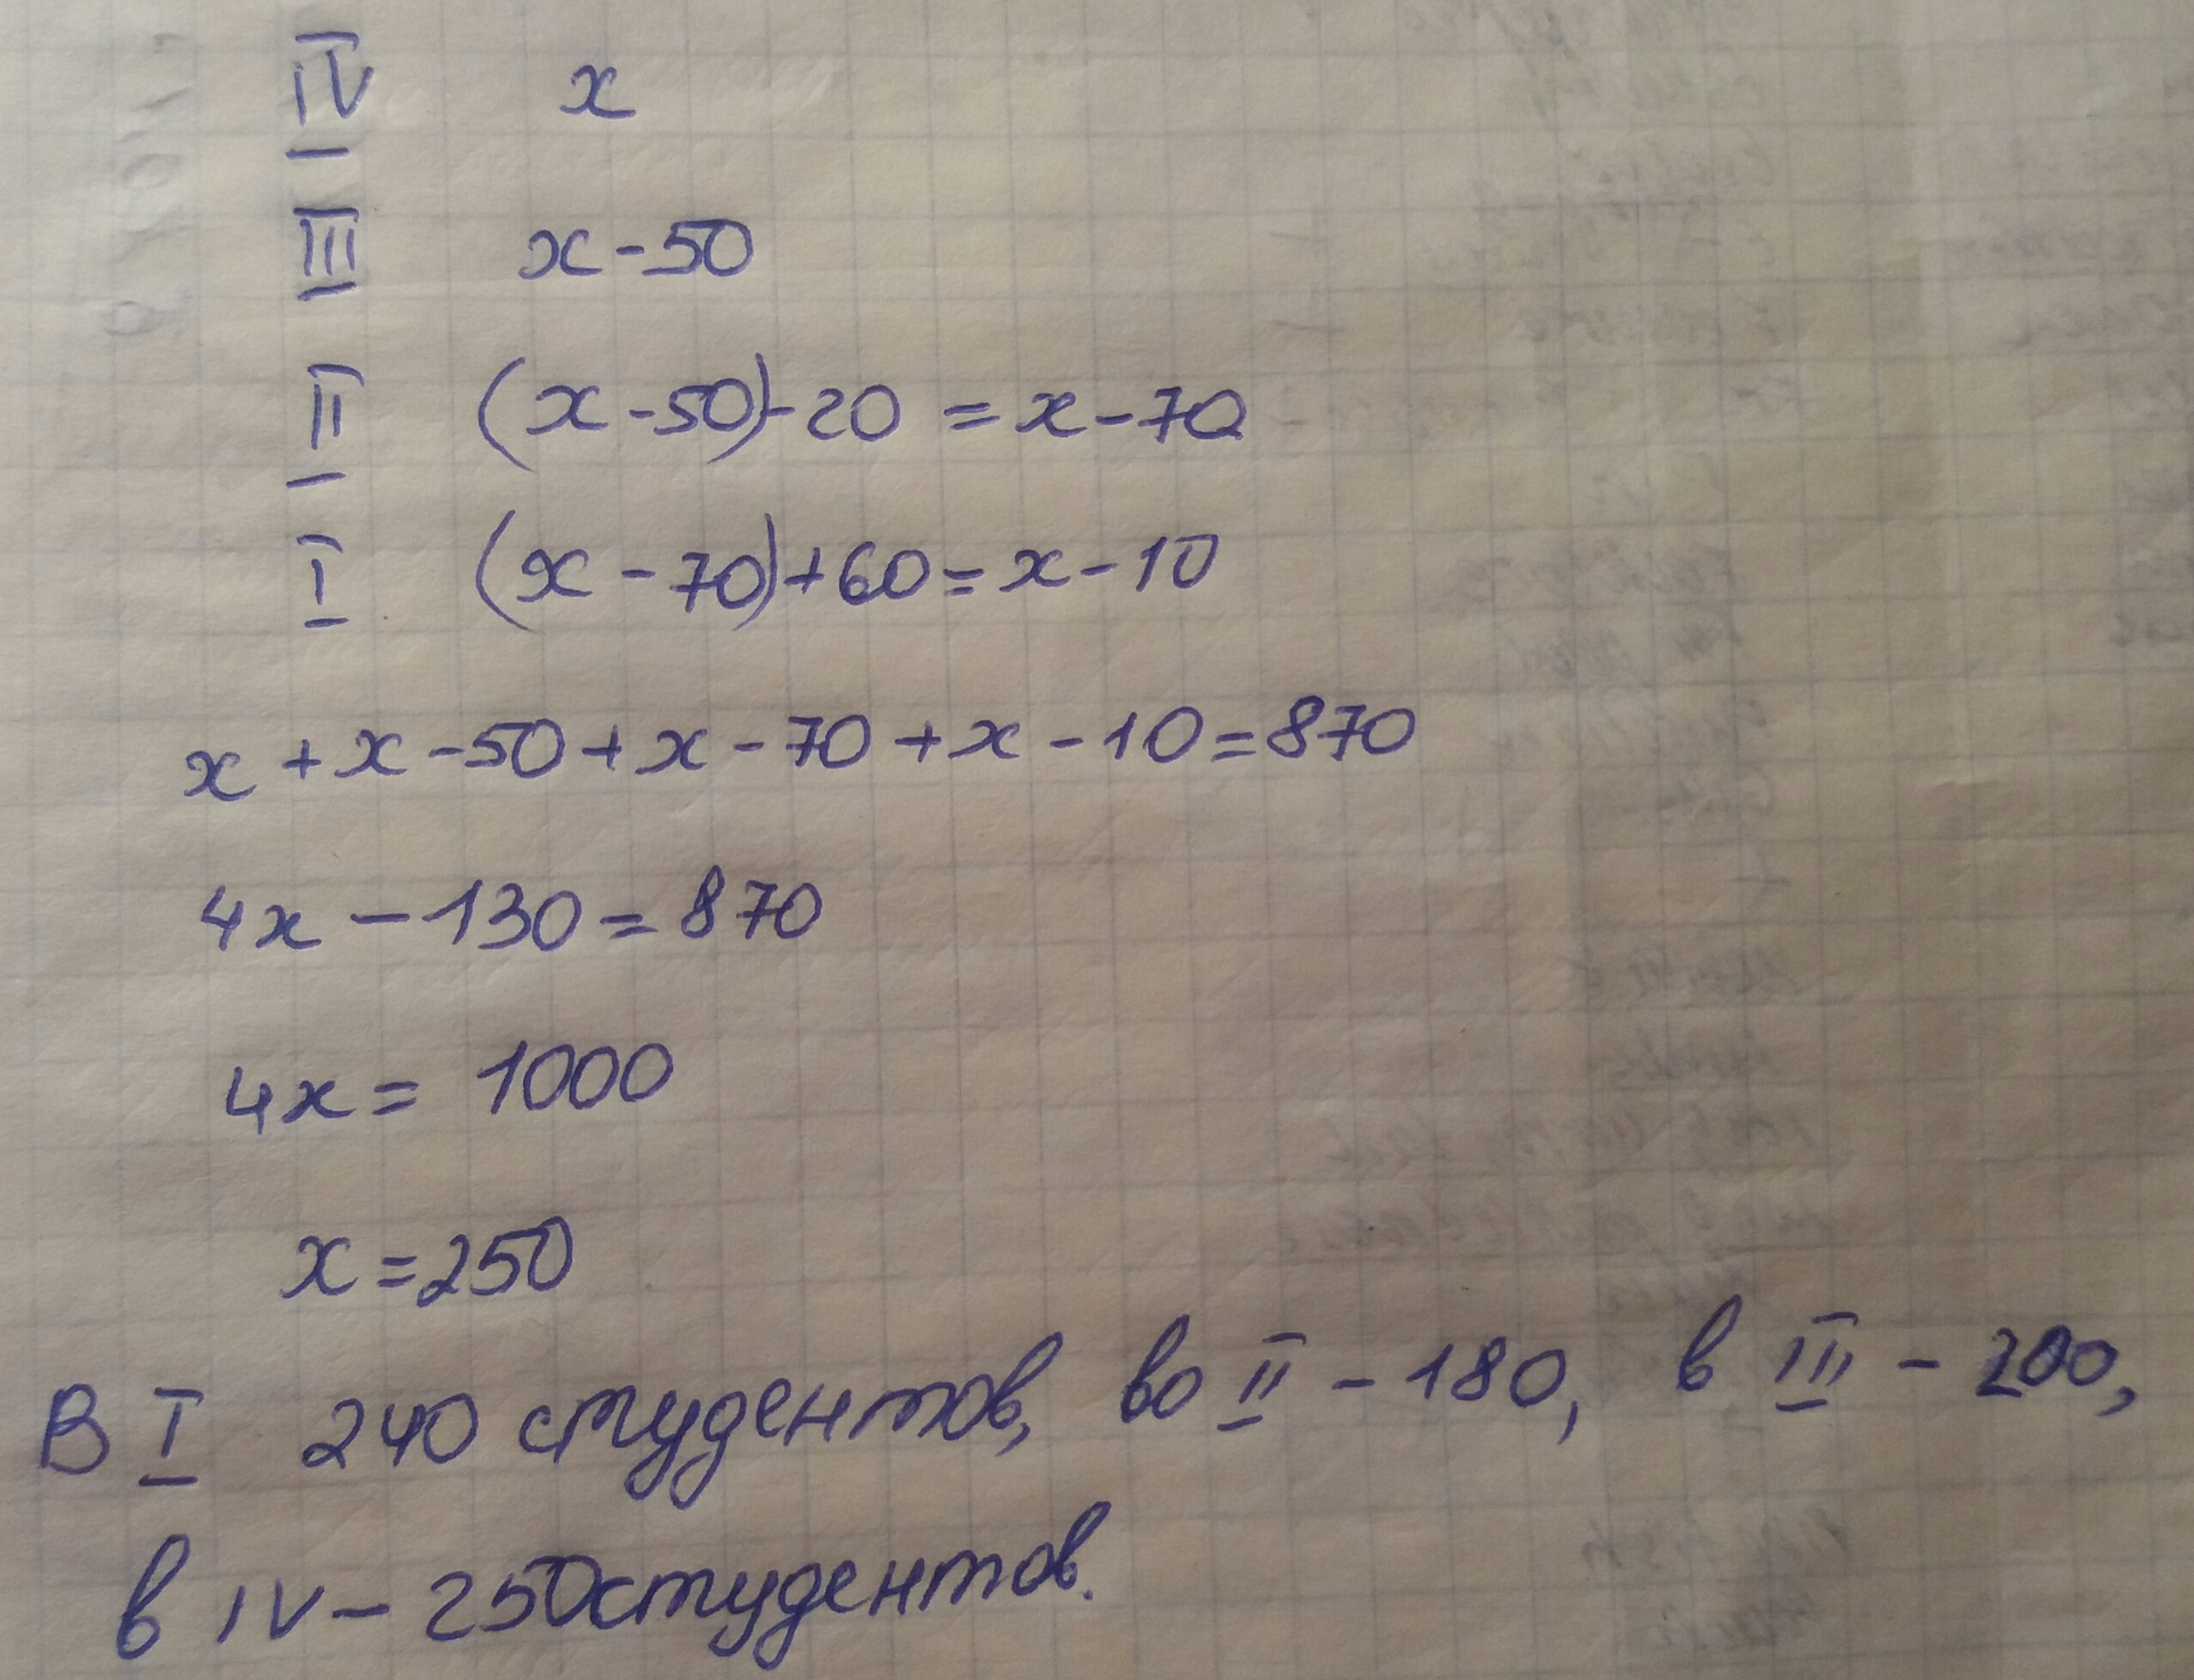 IV x
III x-50
II (x-50)-20 = x-70
I (x-70)+60 = x-10
x+x-50+x-70+x-10=870
4x-130=870
4x= 1000
x=250
В I 240 студентов, во II - 180, в III - 200,
в IV - 250 студентов.